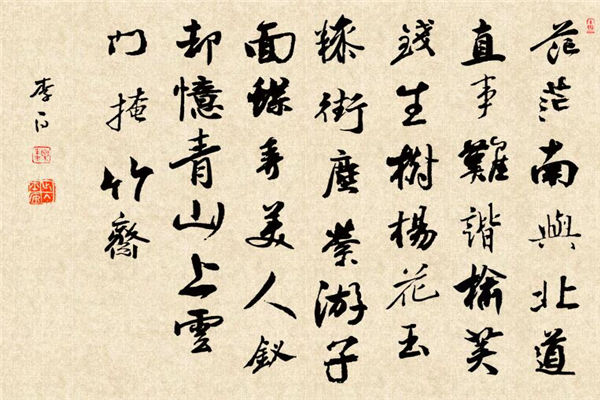 茫茫南與北道
直事難諧榆莢
錢生樹楊花玉
糝街塵縈游子
面蝶弄美人釵
却憶青山上雲
門掩竹齋
李白